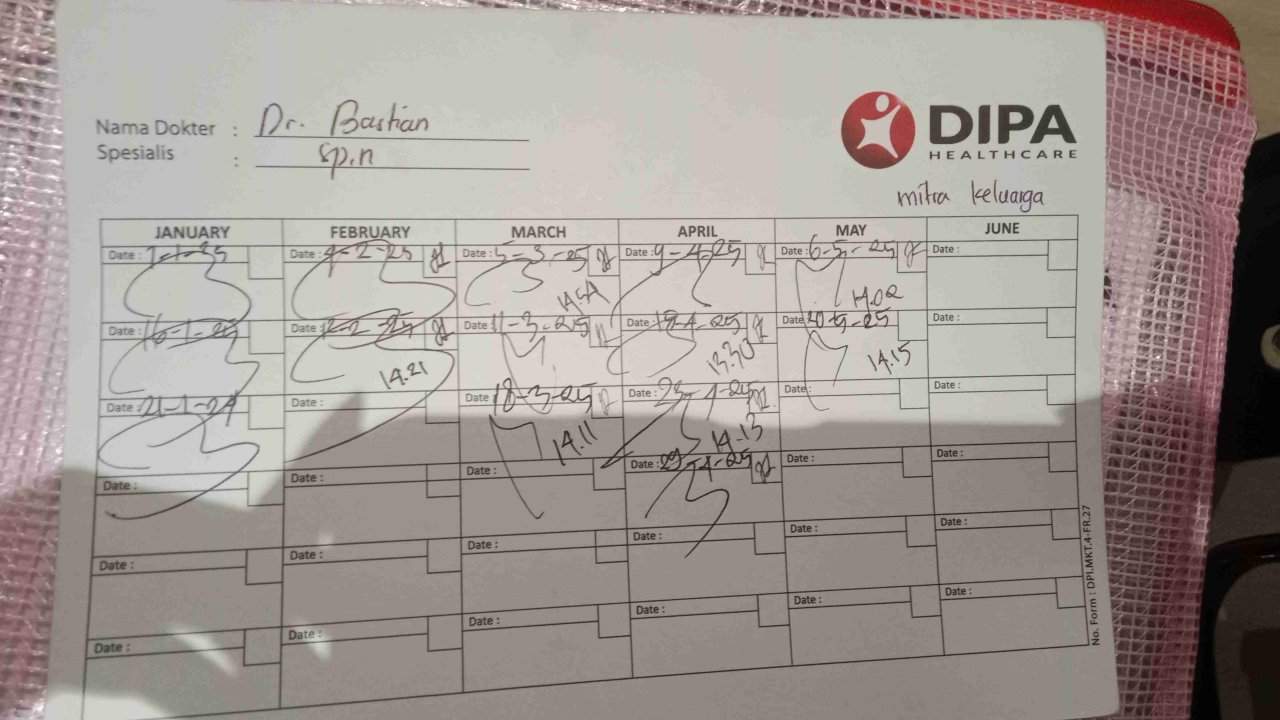 Nama Dokter : Dr. Bastian
Spesialis : Sp.n
DIPA
HEALTHCARE
mitra keluarga
JANUARY FEBRUARY MARCH APRIL MAY JUNE
Date : 7-1-25 Date : 4-2-25 Date : 5-3-25 Date : 9-4-25 Date : 6-5-25 Date :
14.02
Date : 16-1-25 Date : 12-2-25 Date : 11-3-25 Date : Date : 20-5-25 Date :
14.21 13.30 14.15
Date : 21-1-25 Date : Date : 18-3-25 Date : 23-4-25 Date : Date :
14.11 14.13
Date : Date : Date : Date : 29-4-25 Date : Date :
Date : Date : Date : Date : Date : Date :
Date : Date : Date : Date : Date : Date :
No. Form : DPI.MKT.4-FR.27